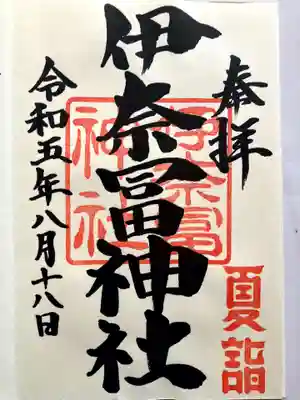 奉拝
伊奈冨神社
伊奈冨
神社
夏詣
令和五年八月十八日